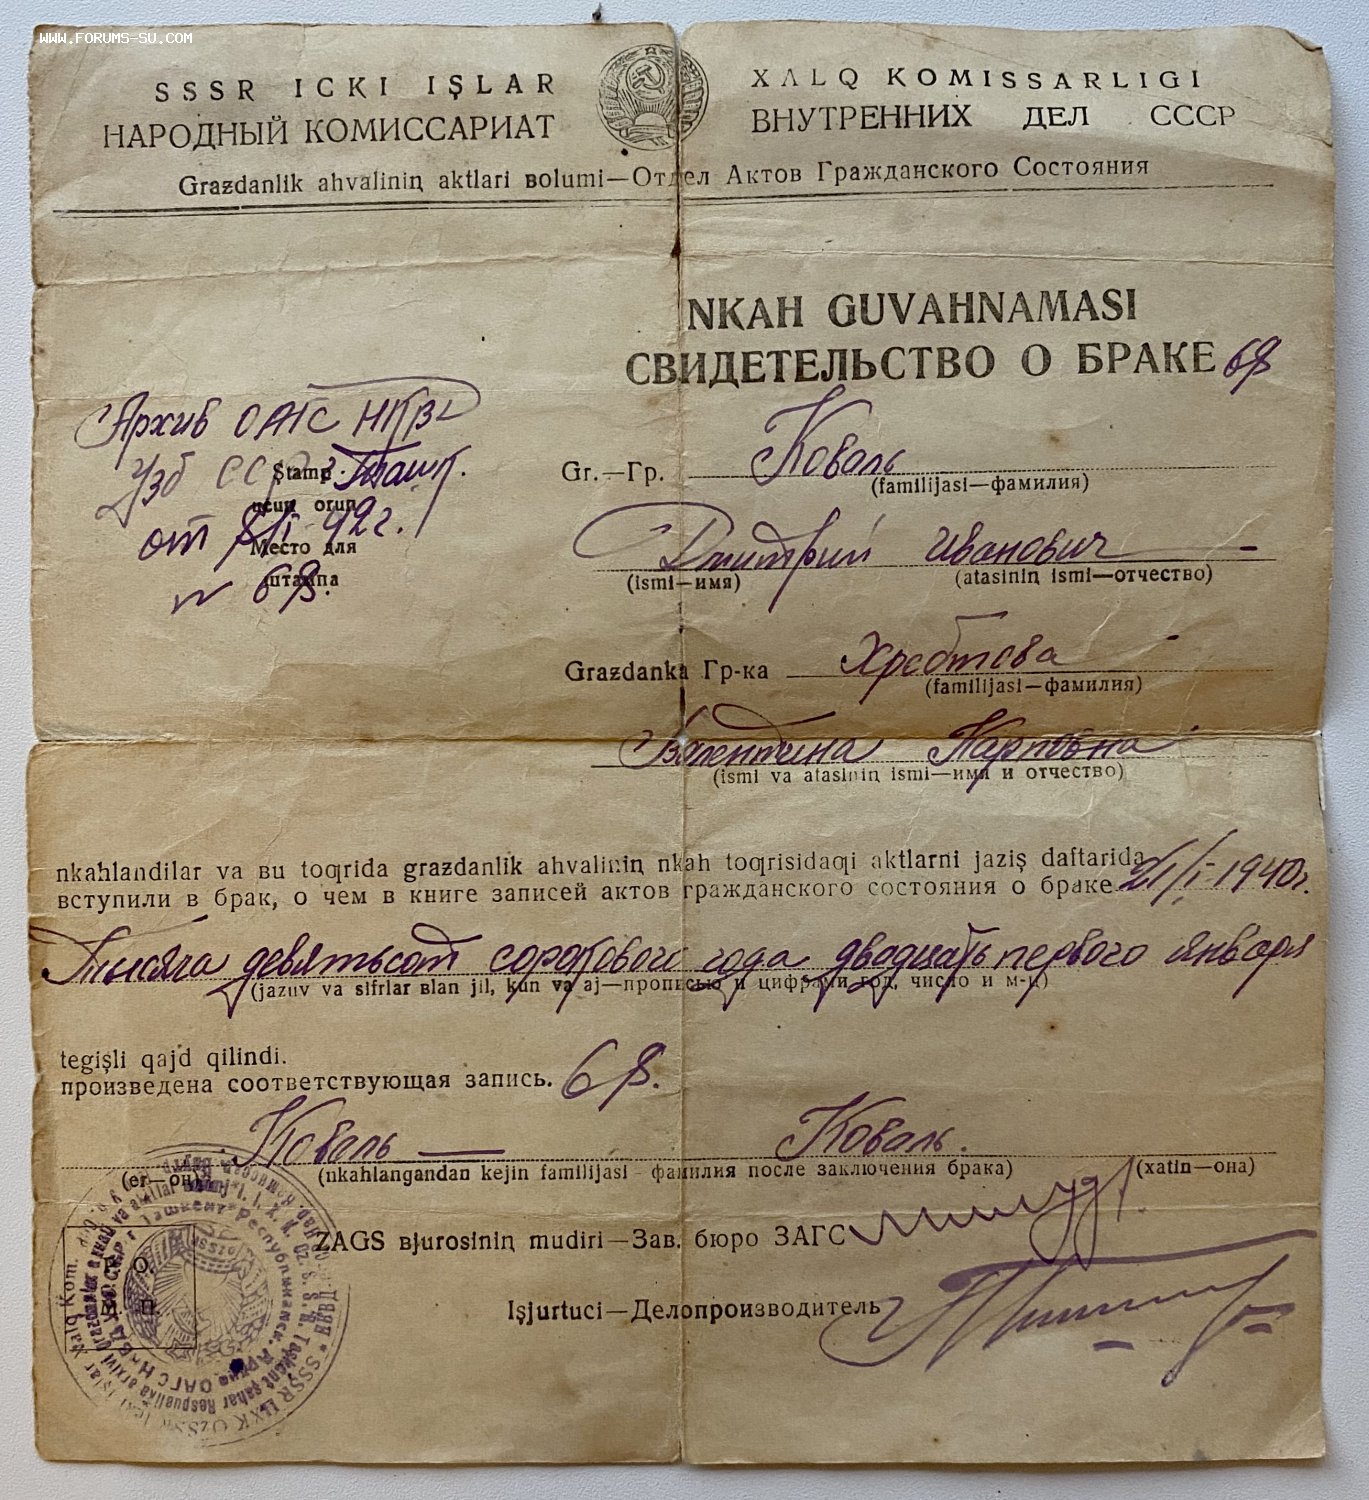 WWW.FORUMS-SU.COM
SSSR ICKI IŞLAR XALQ KOMISSARLIGI
НАРОДНЫЙ КОМИССАРИАТ ВНУТРЕННИХ ДЕЛ СССР
Grazdanlik ahvaliniņ aktlari вolumi—Отдел Актов Гражданского Состояния
NKAH GUVAHNAMASI
СВИДЕТЕЛЬСТВО О БРАКЕ 68
Архив ОАГС НКВД
Узб ССР г. Ташк.
Stamp
ucun orun
от 42г.
Место для
штампа
№ 68.
Gr.—Гр. Коваль
(familijasi—фамилия)
Дмитрий Иванович
(ismi—имя) (atasiniņ ismi—отчество)
Grazdanka Гр-ка Хребтова
(familijasi—фамилия)
Валентина Карповна
(ismi va atasiniņ ismi—имя и отчество)
nkahlandilar va вu toqrida grazdanlik ahvaliniņ nkah toqrisidaqi aktlarni jaziş daftarida
вступили в брак, о чем в книге записей актов гражданского состояния о браке 21/I-1940г.
Тысяча девятьсот сорокового года двадцать первого января
(jazuv va sifrlar вlan jil, kun va aj—прописью и цифрами год, число и м-ц)
tegişli qajd qilindi.
произведена соответствующая запись. 68.
Коваль — Коваль.
(er—он) (nkahlangandan kejin familijasi—фамилия после заключения брака) (xatin—она)
ZAGS вjurosiniņ mudiri—Зав. бюро ЗАГС
М. п.
Işjurtuci—Делопроизводитель